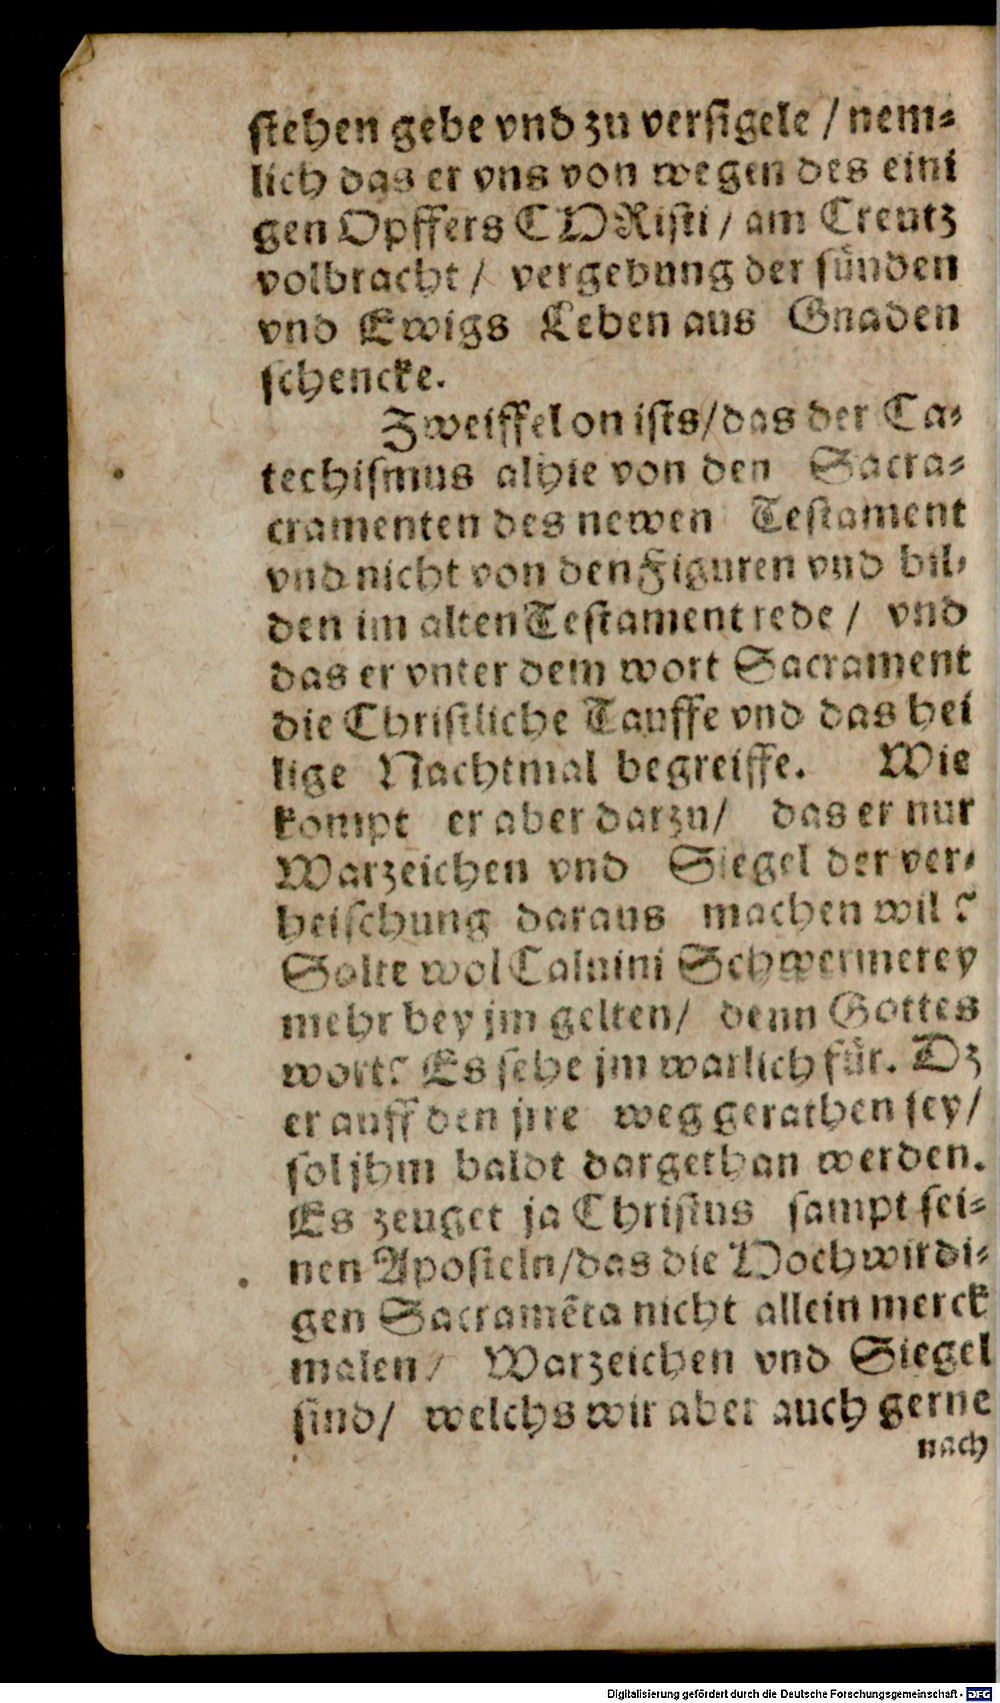 stehen gebe vnd zu versigele / nem⸗
lich das er vns von wegen des eini
gen Opffers CHRisti / am Creutz
volbracht / vergebung der sünden
vnd Ewigs Leben aus Gnaden
schencke.
Zweiffel on ists/das der Ca⸗
techiſmus alhie von den Sacra⸗
cramenten des newen Testament
vnd nicht von den Figuren vnd bil⸗
den im alten Testament rede / vnd
das er vnter dem wort Sacrament
die Christliche Tauffe vnd das hei
lige Nachtmal begreiffe. Wie
kompt er aber darzu/ das er nur
Warzeichen vnd Siegel der ver⸗
heiſchung daraus machen wil ?
Solte wol Caluini Schwermerey
mehr bey jm gelten/ denn Gottes
wort? Es sehe jm warlich für. Dz
er auff den jrre weg gerathen sey/
sol jhm baldt dargethan werden.
Es zeuget ja Christus sampt sei⸗
nen Aposteln/das die Hochwirdi⸗
gen Sacramēta nicht allein merck
malen/ Warzeichen vnd Siegel
sind/ welchs wir aber auch gerne
nach
Digitalisierung gefördert durch die Deutsche Forschungsgemeinschaft - DFG